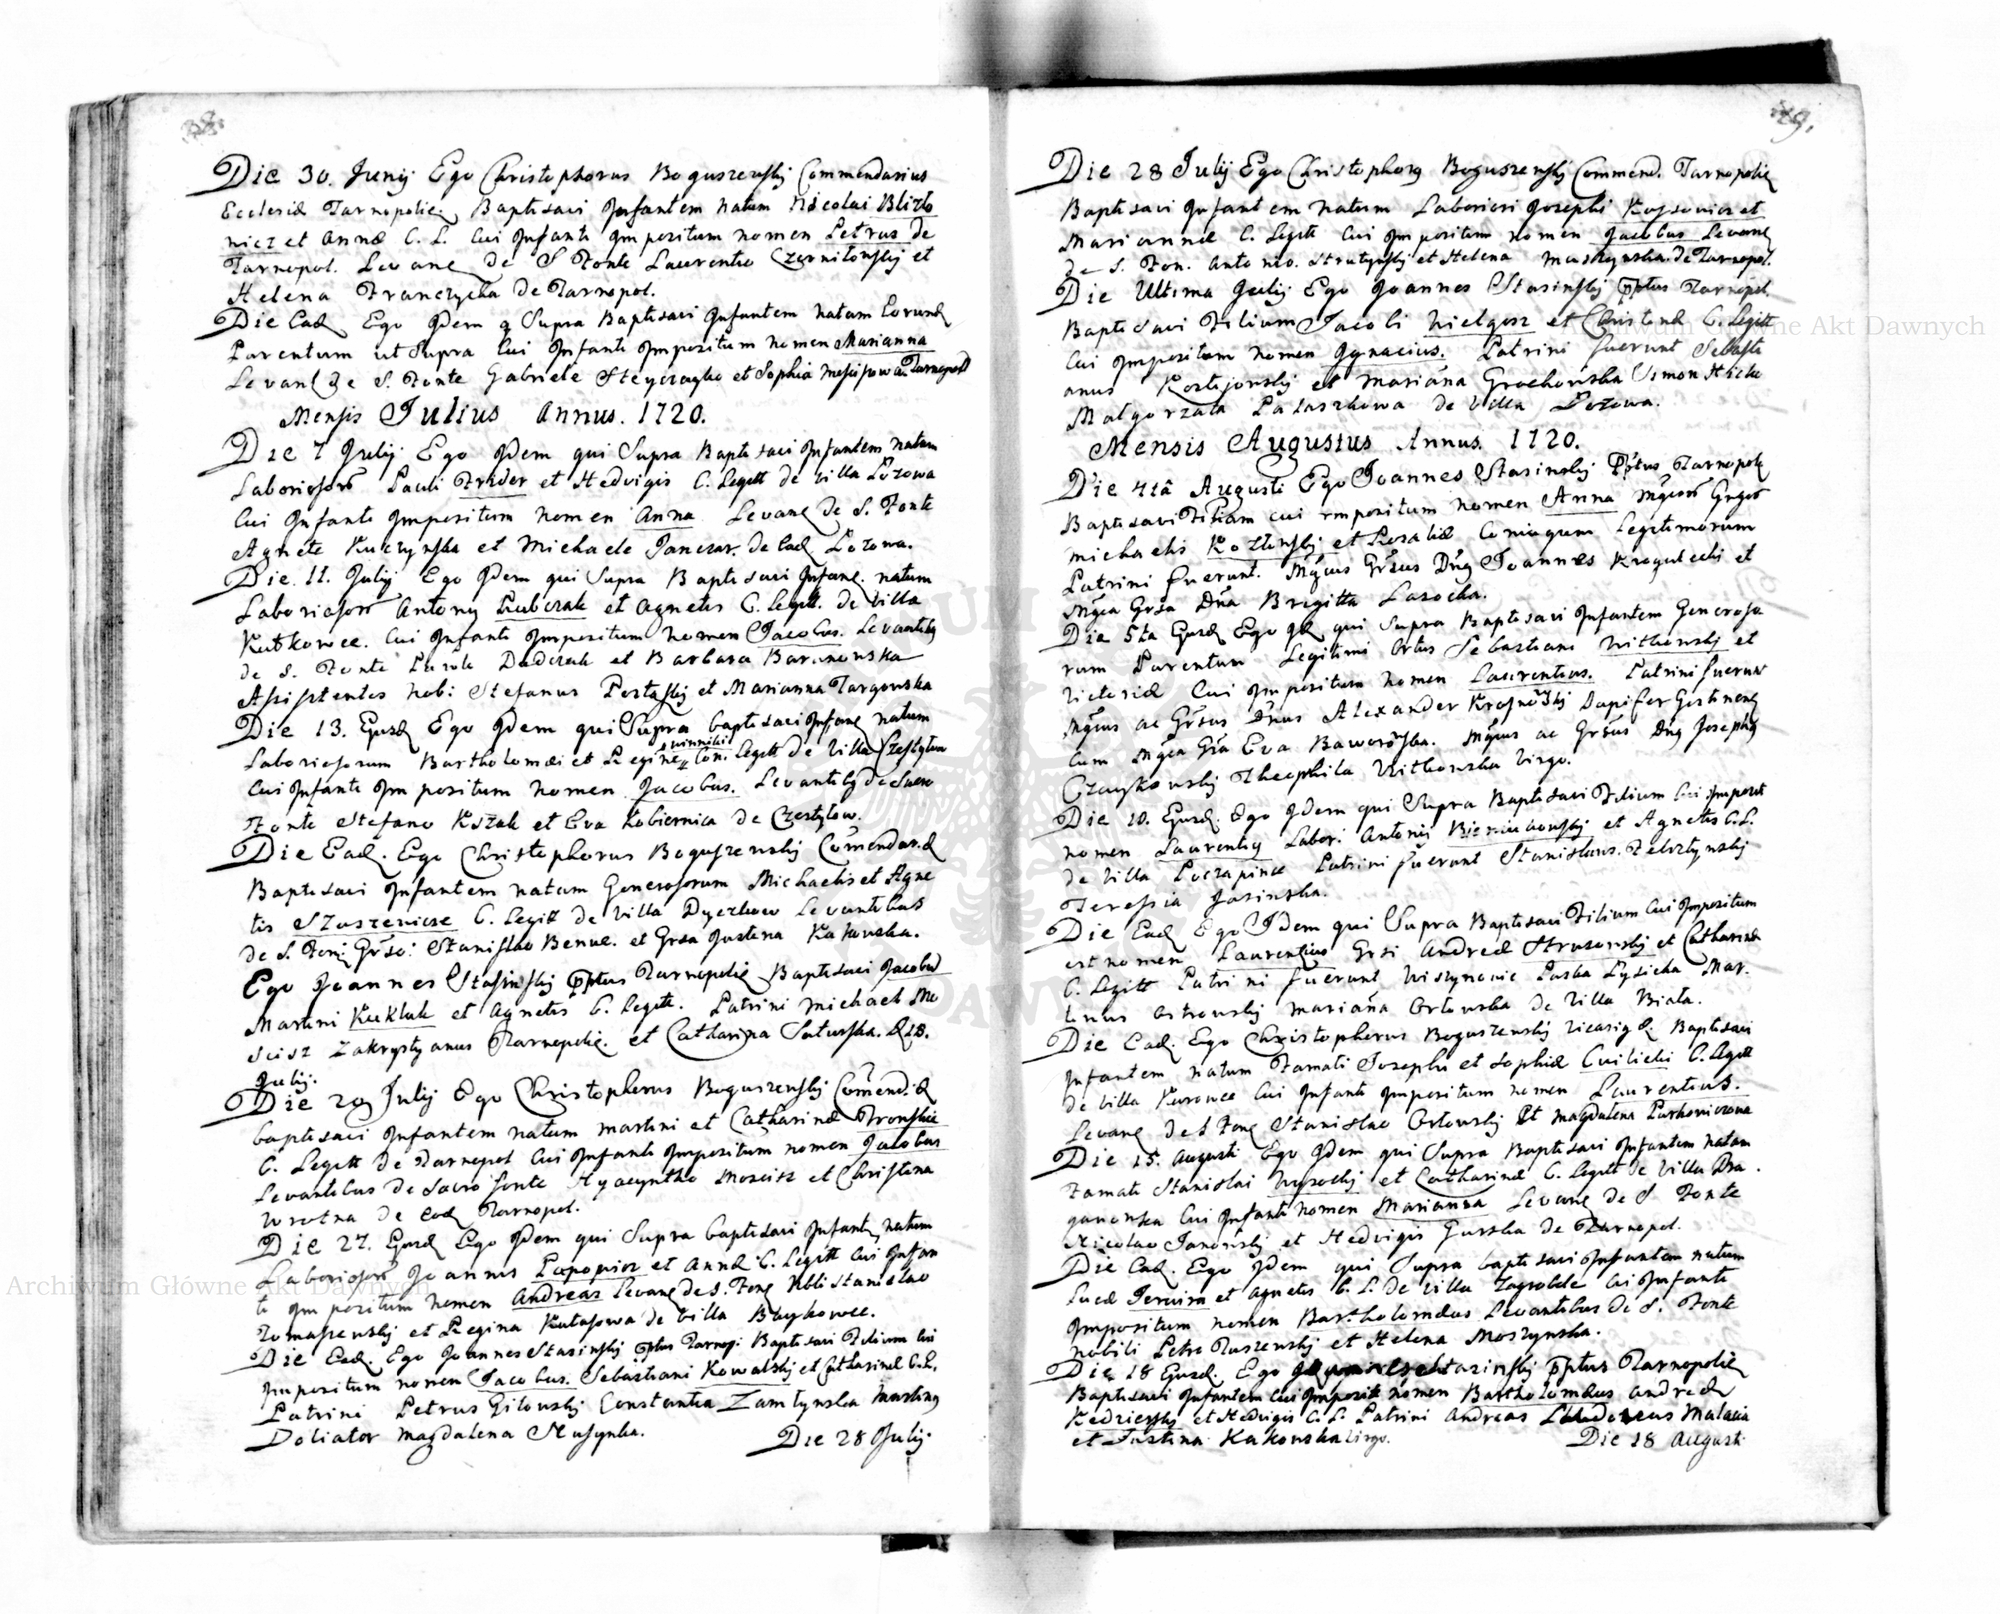 38.
Die 30. Junij Ego Christophorus Boguszenskj Commendarius
Ecclesiæ Tarnopolien Baptisavi Infantem natum Nicolai Blizto
nicz et Annæ C. L. Cui Infanti Impositum nomen Petrus de
Tarnopol. Levane de S Fonte Laurentio Czerniłowskj et
Helena Franczycha de Tarnopol.
Die Ead Ego Idem q Supra Baptisavi Infantem natam Eorund
Parentum ut Supra Cui Infanti Impositum nomen Marianna
Levan de S. Fonte Gabriele et Sophia Tarnopol
Mensis Julius Annus. 1720.
Die 7 Julij Ego Idem qui Supra Baptisavi Infantem natam
Laboriosor Pauli Fryder et Hedvigis C. Legitt de Villa Łozowa
Cui Infanti Impositum nomen Anna Levane de S. Fonte
Agnete Kuczynska et Michaele Janczar. de Ead Łozowa.
Die 11. Julij Ego Idem qui Supra Baptisavi Infane. natum
Laboriosor Antonij Rubczak et Agnetis C. Legitt. de Villa
Kutkowce. Cui Infanti Impositum nomen Jacobus. Levantib
de S. Fonte Paulo Dudczak et Barbara Baranowska
Assistentes Nob: Stefanus et Marianna Targowska
Die 13. Ejusd Ego Idem qui Supra baptisavi Infane natum
Laboriosorum Bartholomæi et Reginæ winniki Con. Legitt de Villa Czystyłow
Cui Infanti Impositum nomen Jacobus. Levantib de Sacro
Fonte Stefano Kszak et Eva Kobiernica de Czestyłow.
Die Ead. Ego Christophorus Boguszenskj Comendar.
Baptisavi Infantem natum Generosorum Michaelis et Agne
tis C. Legitt de Villa Dyczkow Levantibus
de S. Fon: Grso: Stanislao et Grsa Justina Kakowska.
Ego Joannes Stasinskj pptus Tarnopolie Baptisavi Jacobum
Martini Kuklak et Agnetis C. Legitt. Patrini Michael Mo
scisz Zakrystyanus Tarnopolie. et Catharina 18.
Julij.
Die 20 Julij Ego Christophorus Boguszenskj Comend.
baptisavi Infantem natum Martini et Catharinæ
C. Legitt de Tarnopol Cui Infanti Impositum nomen Jacobus
Levantibus de Sacro fonte Hyacyntho Moscisz et Christina
Wrotna de ead Tarnopol.
Die 27. Ejusd Ego Idem qui Supra baptisavi Infante natum
Laboriosor Joannis Popowicz et Annæ C. Legitt Cui Infan
ti Impositum nomen Andreas Levane de S. Fone Nbli Stanislao
Tomaszewskj et Regina Kułasowa de Villa
Die Ead. Ego Joannes Stasinskj pptus Tarnop: Baptisavi Filium Cui
Impositum nomen Jacobus. Sebastiani Kowalskj et Catharinæ C. L.
Patrini Petrus Gilowskj Constantia Zamłynska Martinus
Doliator Magdalena
Die 28 Julij
39.
Die 28 Julij Ego Christophorg Boguszenskj Commend. Tarnopolie
Baptisavi Infantem natum Laboriosi Josephi et
Mariannæ C. Legitt Cui Impositum nomen Jacobus Levane
de S. Fon. Antonio. Strutynskj et Helena de Tarnopol.
Die Ultima Julij Ego Joannes Stasinskj pptus Tarnopol.
Baptisavi Filium Jacobi Wielgosz et Christinæ C. Legitt
Cui Impositum nomen Ignacius. Patrini fuerunt Sebasti
anus et Marianna Grochowska Simon
Małgorzata de Villa Łozowa.
Mensis Augustus Annus. 1720.
Die 4ta Augusti Ego Joannes Stasinskj pptus Tarnopole
Baptisavi Filiam cui impositum nomen Anna
Michaelis Kozłowskj et Rosaliæ Coniugum Legitimorum
Patrini fuerunt. Mgcus Grsus Dnus Joannes et
Mgca Grsa Dna Brigitta Lasocka.
Die 5ta Ejusd Ego Id qui Supra Baptisavi Infantem Generoso
rum Parentum Legitimi Ortus Sebastiani Witkowskj et
Victoriæ Cui Impositum nomen Laurentius. Patrini fuerunt
Mgcus ac Grsus Dnus Alexander Dapifer
Cum Mgca Gra Eva Baworowska. Mgcus ac Grsus Dnus Josephus
Theophila Witkowska Virgo.
Die 10. Ejusd. Ego Idem qui Supra Baptisavi Filium Cui Imposit
nomen Laurentius Labor. Antonij et Agnetis C. L.
de Villa Poczapince Patrini fuerunt Stanislaus.
Teressia Jasinska.
Die Ead Ego Idem qui Supra Baptisavi Filium Cui Impositum
est nomen Laurentius Grsi Andreæ Strusowskj et Catharinæ
C. Legitt Patrini fuerunt Mar.
tinus Ostrowskj Mariana Orłowska de Villa Biała.
Die Ead. Ego Christophorus Boguszenskj Baptisavi
Infantem natum Famati Josephi et Sophiæ C. Legitt
de Villa Kurowce Cui Infanti Impositum nomen Laurentius.
Levane de S Fone Stanislao Orłowskj Et Magdalena
Die 15. Augusti Ego Idem qui Supra Baptisavi Infantem natam
Famati Stanislai Wysockj et Catharinæ C. Legitt de Villa Dra
ganowka Cui Infanti nomen Marianna Levane de S Fonte
Nicolao Janowskj et Hedvigis Gurska de Tarnopol.
Die Ead. Ego Idem qui Supra baptisavi Infantem natum
Lucæ et Agnetis C. L. de Villa Zagrobele Cui Infanti
Impositum nomen Bartholomæus Levantibus de S. Fonte
Nobili Petro Ruszewskj et Helena Moszynska.
Die 18 Ejusd. Ego Joannes Stasinskj pptus Tarnopolie
Baptisavi Infantem Cui Imposit nomen Bartholomæus Andreæ
Kedzierskj et Hedvigis C. L. Patrini Andreas
et Justina Kakowska Virgo.
Die 18 Augusti
Archiwum Główne Akt Dawnych
Archiwum Główne Akt Dawnych